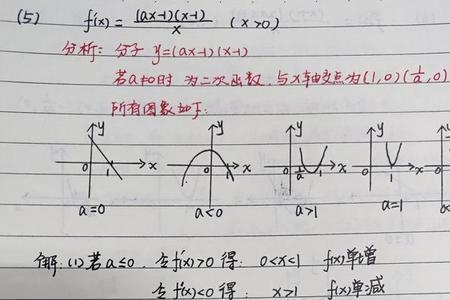 (5) f'(x) = (ax-1)(x-1)/x (x>0)
分析: 分子 y=(ax-1)(x-1)
若a≠0时 为二次函数, 与x轴交点为(1,0)(1/a,0)
所有图象如下:
y y y y
0 1 x 0 1 x 0 1/a 1 x 0 1 x
a=0 a<0 a>1 a=1
解: (1)若a≤0. 令f'(x)>0得: 0<x<1 f(x)单增
令f'(x)<0得: x>1 f(x)单减